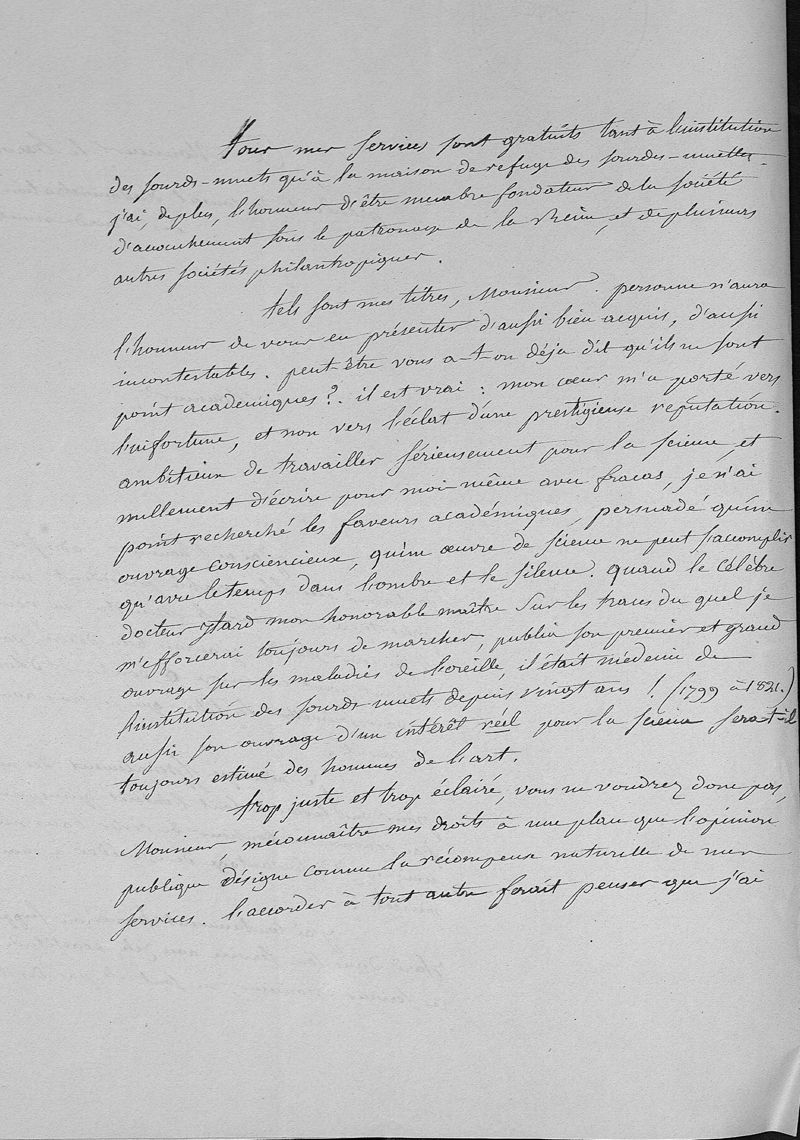 tous mes services sont gratuits tant à l'institution
des sourds-muets qu'à la maison de refuge des sourdes-muettes.
j'ai, de plus, l'honneur d'être membre fondateur de la société
d'accouchement sous le patronage de la Reine, et de plusieurs
autres sociétés philantropiques.
tels sont mes titres, Monsieur. personne n'aura
l'honneur de vous en présenter d'aussi bien acquis, d'aussi
incontestables. peut-être vous a-t-on déja dit qu'ils ne sont
point académiques?. il est vrai : mon cœur m'a porté vers
l'infortune, et non vers l'éclat d'une prestigieuse réputation.
ambitieux de travailler sérieusement pour la science, et
nullement d'écrire pour moi-même avec fracas, je n'ai
point recherché les faveurs académiques, persuadé qu'un
ouvrage consciencieux, qu'un œuvre de science ne peut s'accomplir
qu'avec le temps dans l'ombre et le silence. quand le célèbre
docteur ytard mon honorable maître sur les traces du quel je
m'efforcerai toujours de marcher, publia son premier et grand
ouvrage sur les maladies de l'oreille, il était médecin de
l'institution des sourds-muets depuis vingt ans ! (1799 à 1821.)
aussi son ouvrage d'un intérêt réel pour la science sera-t-il
toujours estimé des hommes de l'art.
trop juste et trop éclairé, vous ne voudrez donc pas,
Monsieur, méconnaître mes droits à une place que l'opinion
publique désigne comme la récompense naturelle de mes
services. l'accorder à tout autre ferait penser que j'ai